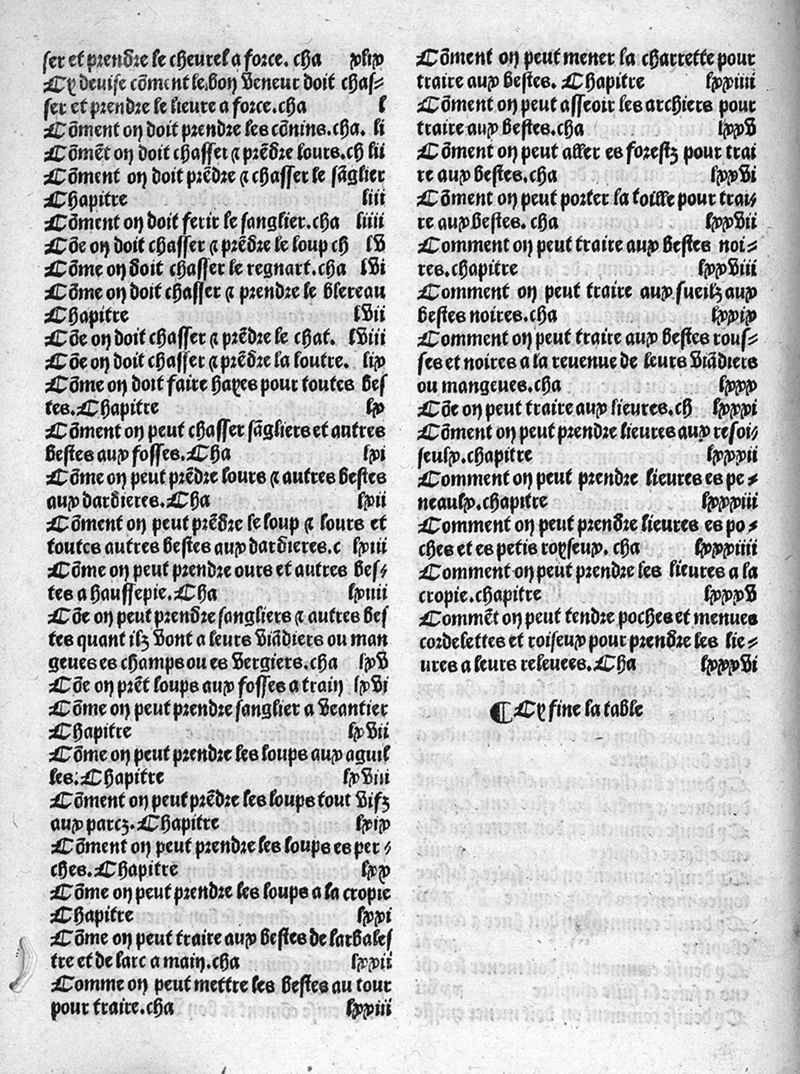 ser et prendre le cheurel a force. cha xlix
Cy deuise cōment le bon Veneur doit chas⸗
ser et prendre le lieure a force.cha l
Cōment on doit prendre les cōnins.cha. li
Cōmēt on doit chasser ⁊ prēdre lours.ch lii
Cōment on doit prēdre ⁊ chasser le sāglier
Chapitre liii
Cōment on doit ferir le sanglier.cha liiii
Cōe on doit chasser ⁊ prēdre le loup ch lv
Cōme on doit chasser le regnart.cha lvi
Cōme on doit chasser ⁊ prendre le blereau
Chapitre lvii
Cōe on doit chasser ⁊ prēdre le chat. lviii
Cōe on doit chasser ⁊ prēdre la loutre. lix
Cōme on doit faire hayes pour toutes bes
tes.Chapitre lx
Cōment on peut chasser sāgliers et autres
bestes aux fosses.Cha lxi
Cōme on peut prēdre lours ⁊ autres bestes
aux dardieres.Cha lxii
Cōment on peut prēdre le loup ⁊ lours et
toutes autres bestes aux dardieres.c lxiii
Cōme on peut prendre ours et autres bes⸗
tes a haussepie.Cha lxiiii
Cōe on peut prendre sangliers ⁊ autres bes
tes quant ilz vont a leurs viādiers ou man
geues es champs ou es vergiers.cha lxv
Cōe on prēt loups aux fosses a train lxvi
Cōme on peut prendre sanglier a veantier
Chapitre lxvii
Cōme on peut prendre les loups aux aguil
les.Chapitre lxviii
Cōment on peut prēdre les loups tout vifz
aux parcz.Chapitre lxix
Cōment on peut prendre les loups es per⸗
ches.Chapitre lxx
Cōme on peut prendre les loups a la cropie
Chapitre lxxi
Cōme on peut traire aux bestes de larbales
tre et de larc a main.cha lxxii
Comme on peut mettre les bestes au tour
pour traire.cha lxxiii
Cōment on peut mener la charrette pour
traire aux bestes. Chapitre lxxiiii
Cōment on peut asseoir les archiers pour
traire aux bestes.cha lxxv
Cōment on peut aller es forestz pour trai
re aux bestes.cha lxxvi
Cōment on peut porter la toille pour trai⸗
re aux bestes. cha lxxvii
Comment on peut traire aux bestes noi⸗
res.chapitre lxxviii
Comment on peut traire aux sueilz aux
bestes noires.cha lxxix
Comment on peut traire aux bestes rous⸗
ses et noires a la reuenue de leurs viādiers
ou mangeues.cha lxxx
Cōe on peut traire aux lieures.ch lxxxi
Cōment on peut prendre lieures aux resoi⸗
seulx.chapitre lxxxii
Comment on peut prendre lieures es pe⸗
neaulx.chapitre lxxxiii
Comment on peut prendre lieures es po⸗
ches et es petis royseux. cha lxxxiiii
Comment on peut prendre les lieures a la
cropie.chapitre lxxxv
Commēt on peut tendre poches et menues
cordelettes et roiseux pour prendre les lie⸗
ures a leurs releuees.Cha lxxxvi
¶ Cy fine la table